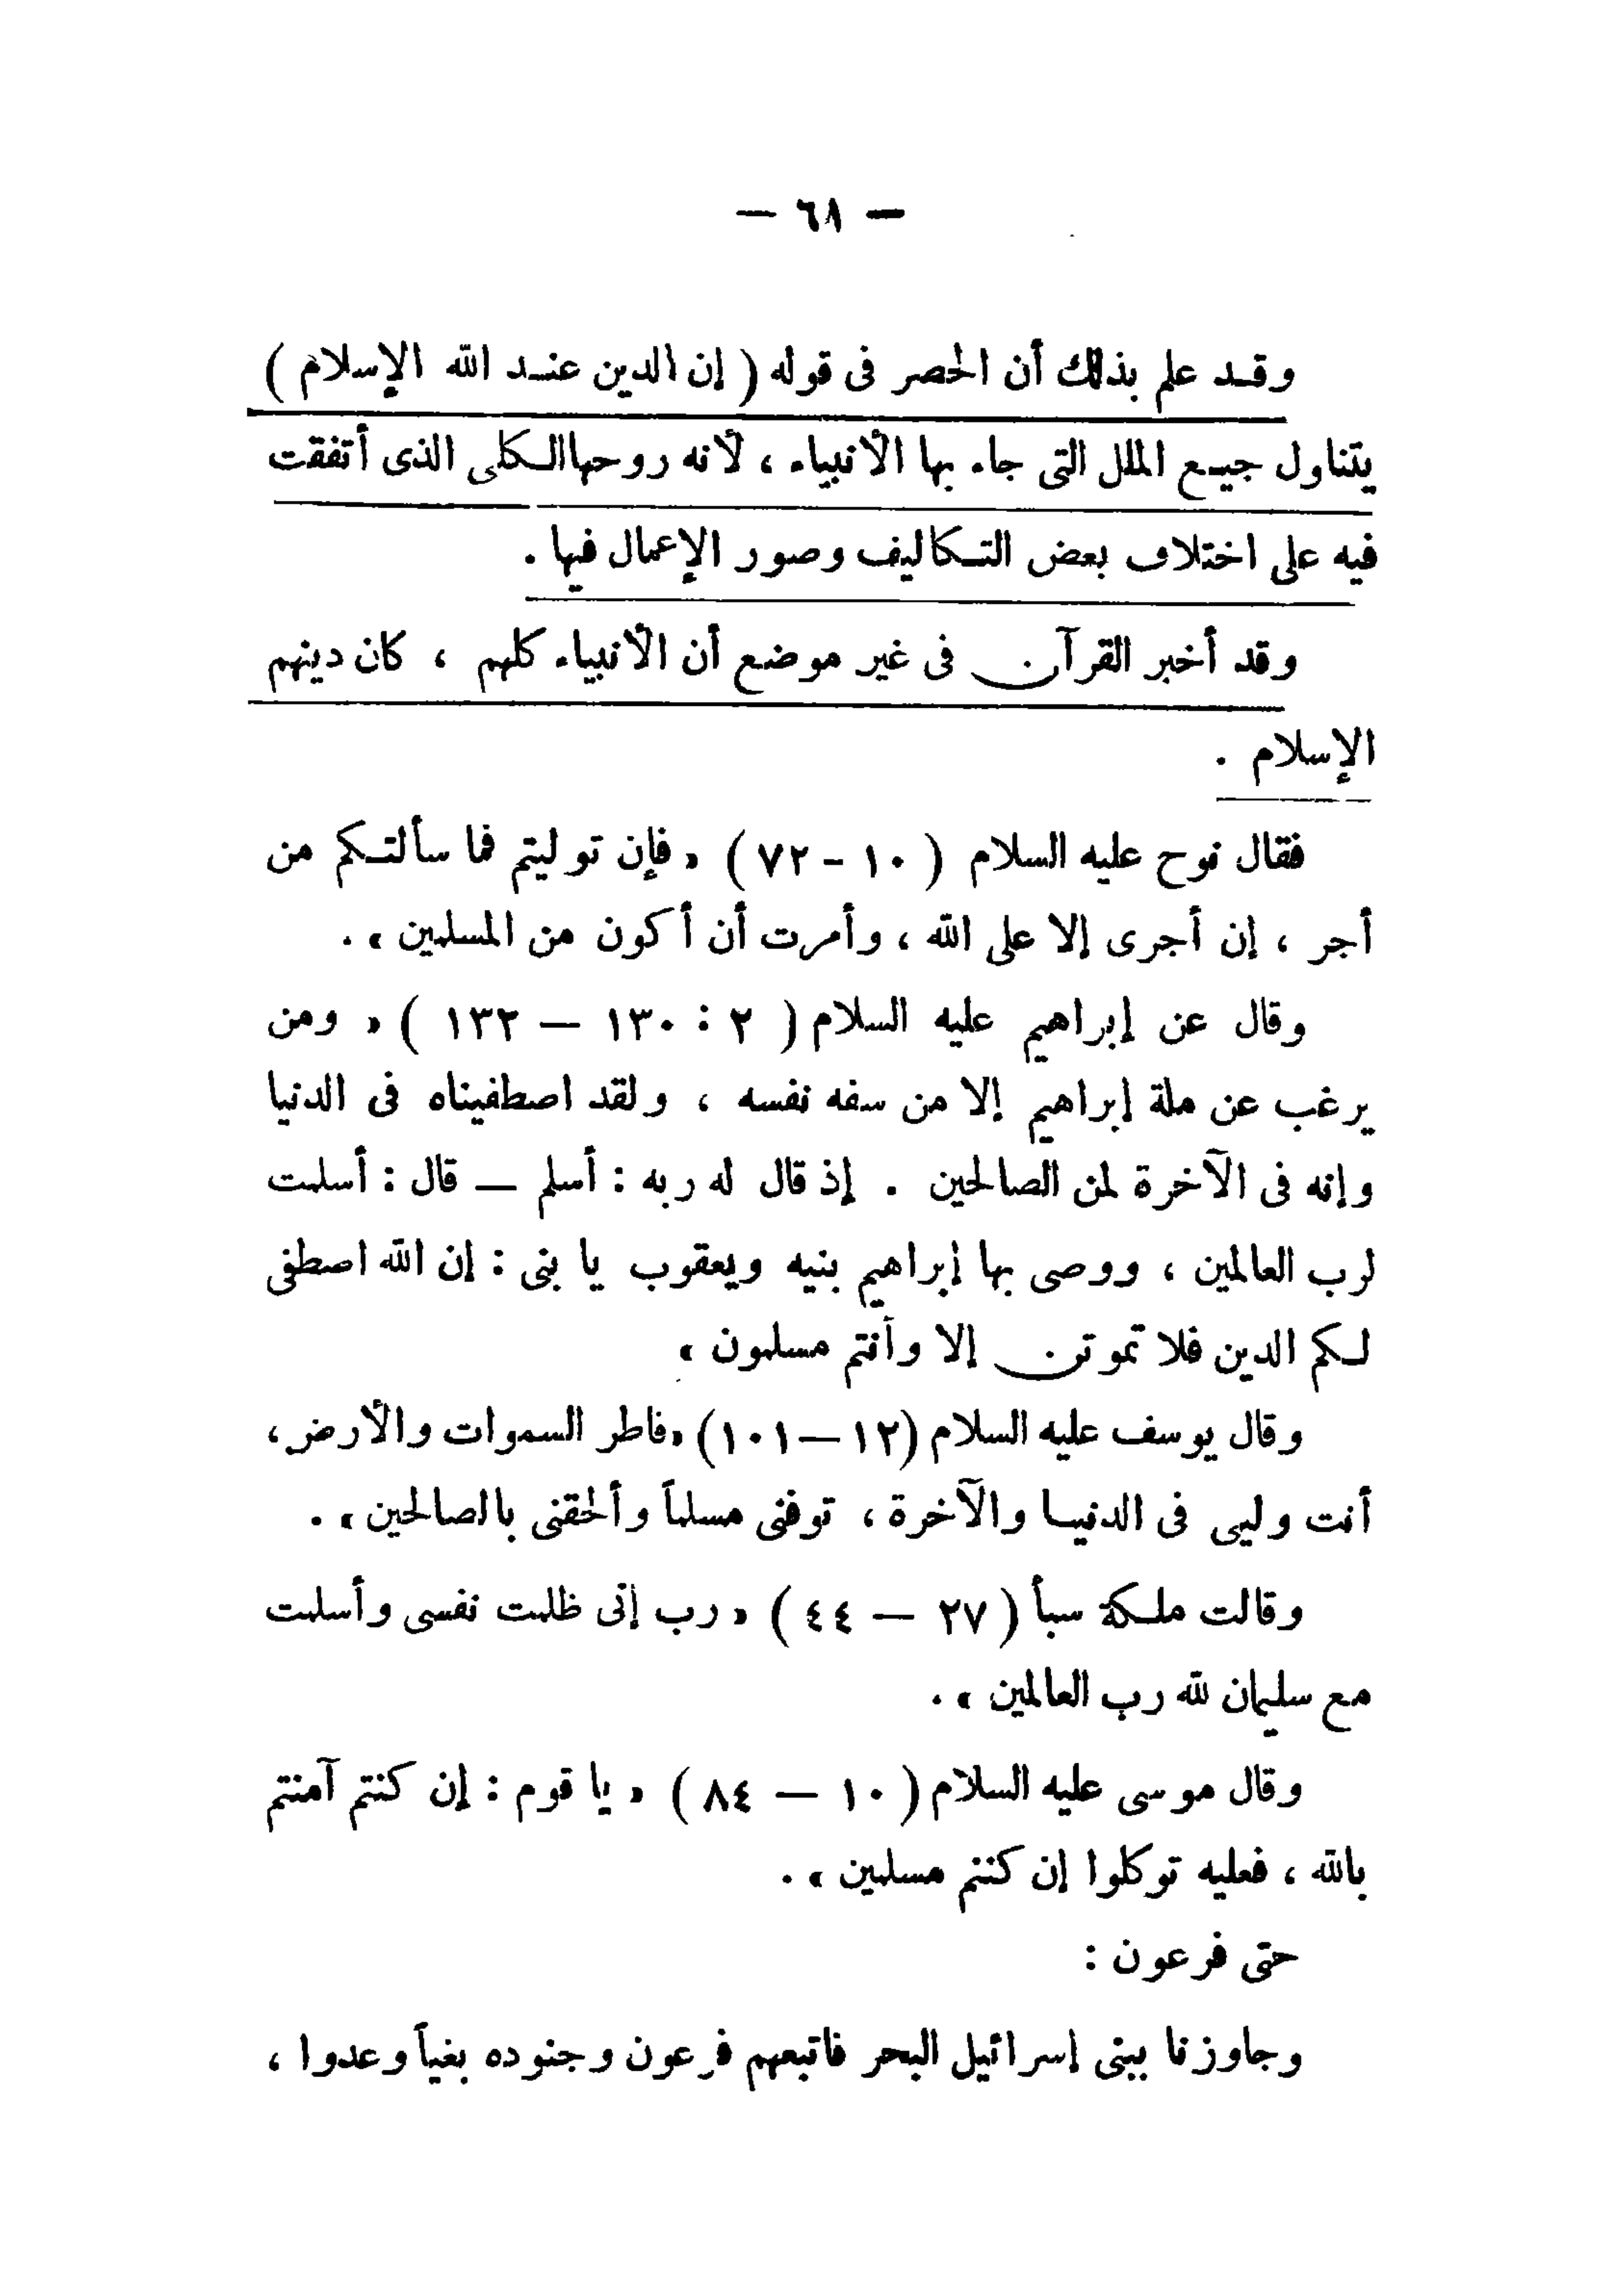 — ٦٨ —
وقد علم بذلك أن الحصر فى قوله ( إن الدين عند الله الإسلام )
يتناول جميع الملل التى جاء بها الأنبياء ، لأنه روحها الكلى الذى أتفقت
فيه على اختلاف بعض التكاليف وصور الإعمال فيها .
وقد أخبر القرآن فى غير موضع أن الأنبياء كلهم ، كان دينهم
الإسلام .
فقال نوح عليه السلام ( ١٠ - ٧٢ ) « فإن توليتم فما سألتكم من
أجر ، إن أجرى إلا على الله ، وأمرت أن أكون من المسلمين » .
وقال عن إبراهيم عليه السلام ( ٢ : ١٣٠ — ١٣٢ ) « ومن
يرغب عن ملة إبراهيم إلا من سفه نفسه ، ولقد اصطفيناه فى الدنيا
وإنه فى الآخرة لمن الصالحين . إذ قال له ربه : أسلم — قال : أسلمت
لرب العالمين ، ووصى بها إبراهيم بنيه ويعقوب يا بنى : إن الله اصطفى
لكم الدين فلا تموتن إلا وأنتم مسلمون »
وقال يوسف عليه السلام (١٢—١٠١) «فاطر السموات والأرض،
أنت وليى فى الدنيا والآخرة ، توفنى مسلماً وألحقنى بالصالحين » .
وقالت ملكة سبأ ( ٢٧ — ٤٤ ) « رب إنى ظلمت نفسى وأسلمت
مع سليمان لله رب العالمين » .
وقال موسى عليه السلام ( ١٠ — ٨٤ ) « يا قوم : إن كنتم آمنتم
بالله ، فعليه توكلوا إن كنتم مسلمين » .
حتى فرعون :
وجاوزنا ببنى إسرائيل البحر فاتبعهم فرعون وجنوده بغياً وعدوا ،